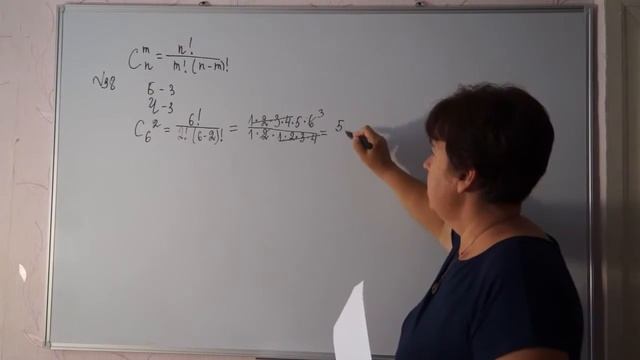 C_n^m = n! / m! (n-m)!
№38
Б - 3
Ч - 3
C_6^2 = 6! / 2! (6-2)! = 1·2·3·4·5·6 3 / 1·2·1·2·3·4 = 5